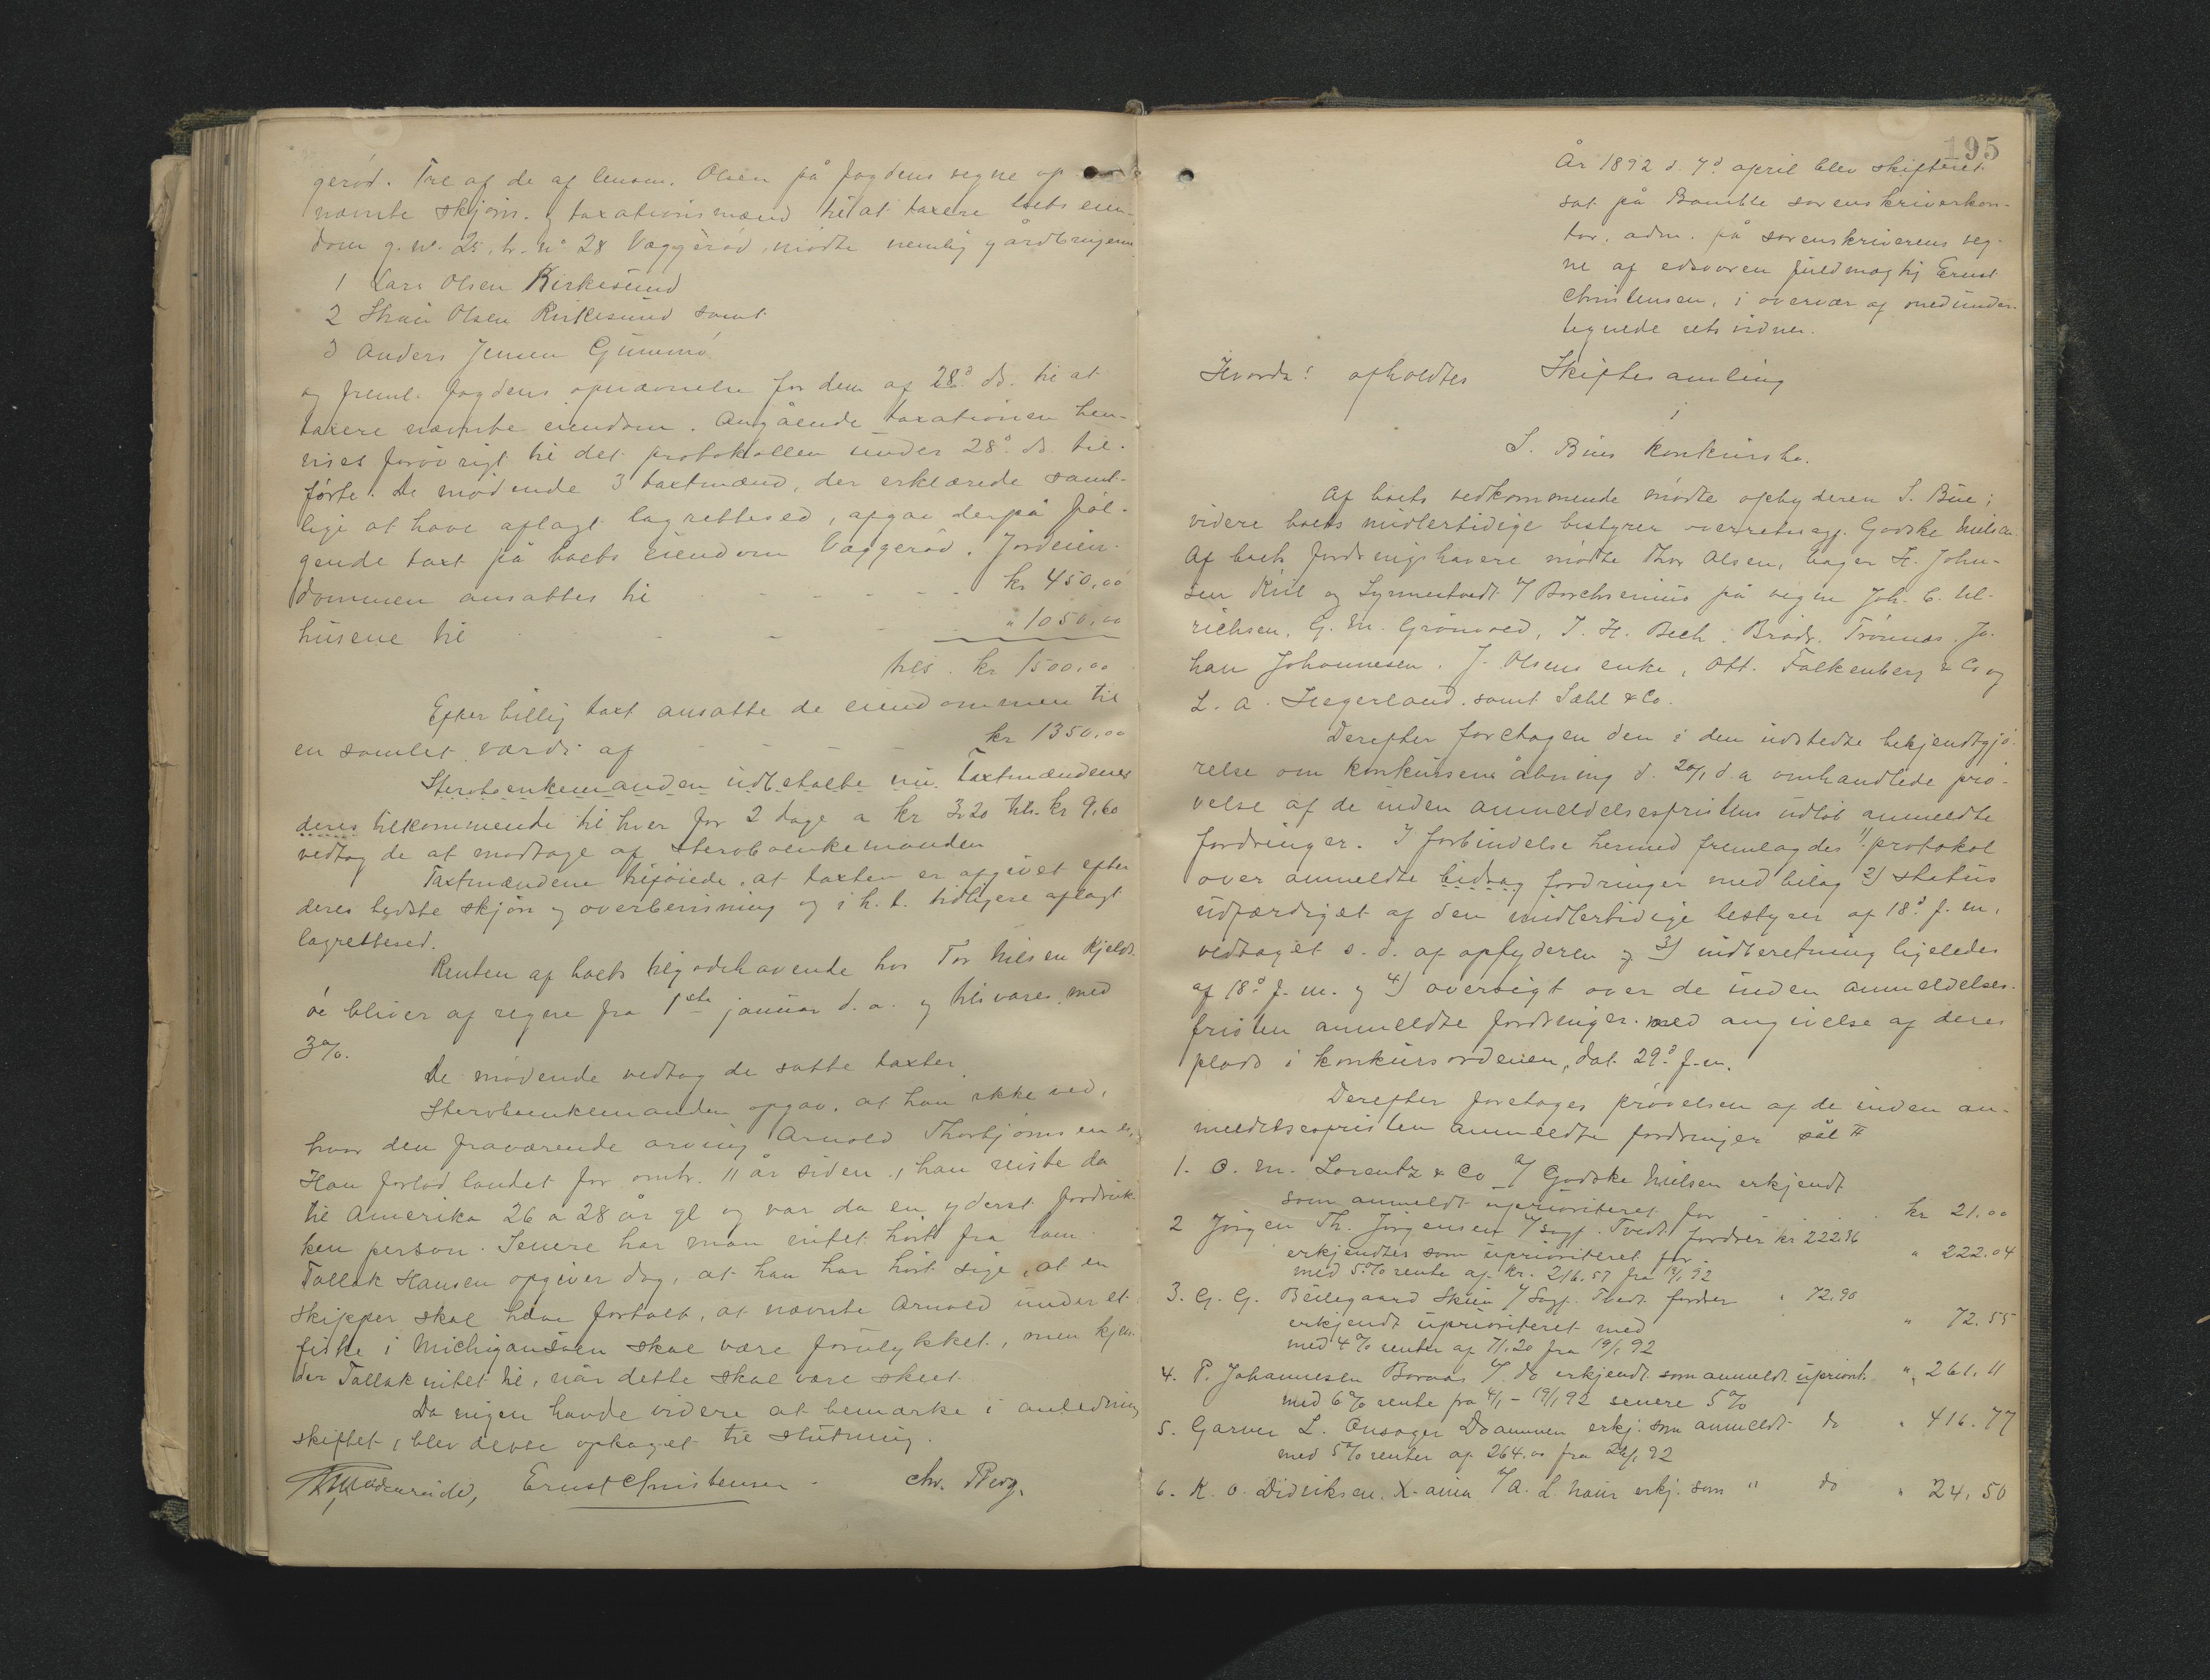 gerød. Tre af de af lensm. Olsen på fogdens vegne op
nævnte skjøns. og taxationsmænd til at taxere boets eien-
dom g. nº 25, b. nº 28 Vaggerød, mødte nemlig gårdbrugerne
1 Lars Olsen Kirkesund
2 Olsen Kirkesund samt
3 Anders Jensen Gummø
og freml. fogdens opnævnelse for dem af 28d ds. til at
taxere nævnte eiendom. Angående taxationen hen-
vises forøvrigt til det protokollen under 28d ds. til-
førte. De mødende 3 taxtmænd, der erklærede samt-
lige at have aflagt lagretteed, afgav derpå føl-
gende taxt på boets eiendom Vaggerød. Jordeien-
dommen ansattes til - - - - - kr 450,00
husene til - - - " 1050,00
tils. kr 1500,00
Efter billig taxt ansatte de eiendommen til
en samlet værdi af - - - - kr 1350,00
Stervboenkemanden udbetalte nu Taxtmændenes
deres tilkommende til hver for 2 dage a kr 3,20 tils. kr 9,60
vedtog de at modtage af stervboenkemanden
Taxtmændene tilføiede, at taxten er afgivet efter
deres bedste skjøn og overbevisning og i h. t. tidligere aflagt
lagretteed.
Renten af boets tilgodehavende hos Tor Nilsen Kjelds
øe bliver af regne fra 1ste januar d. a. og tilsvares med
3%.
De mødende vedtog de satte taxter.
Stervboenkemanden opgav, at han ikke ved,
hvor den fraværende arving Arnold Thorbjørnsen er.
Han forlod landet for omtr. 11 år siden, han reiste da
til Amerika 26 a 28 år gl og var da en yderst fordruk-
ken person. Senere har man intet hørt fra ham.
Tallak Hansen opgiver dog, at han har hørt sige, at en
skipper skal have fortalt, at nævnte Arnold under et
fiske i Michigansøen skal være forulykket, men kjen-
der Tallak intet til, når dette skal være skeet.
Da ingen havde videre at bemærke i anledning
skiftet, blev dette optaget til slutning.
Ernst Christensen. Chr. Berg.
195
År 1892 d. 7d april blev skifteret
sat på Bamble sorenskriverkon-
tor, adm. på sorenskriverens veg-
ne af edsvoren fuldmægtig Ernst
Christensen, i overvær af medunder-
tegnede retsvidner.
Hvorda! afholdtes Skiftesamling
i
S. Bues konkursbo.
Af boets vedkommende mødte opbyderen S. Bue;
videre boets midlertidige bestyrer overretssagf. Godske Nielsen.
Af boets fordringshavere mødte Thor Olsen, bager H. John-
sen Kiil og Synnestvedt %Borchsenius på vegne Joh. C. Ul-
richsen, G. M. Grønvold, J. H. Bech, Brødr. Trønnes, Jo-
han Johannesen, J. Olsens enke, Ott. Falkenberg & Co og
L. A. Hegerland, samt Sæhl & Co.
Derefter foretagen den i den udstedte bekjendtgjø-
relse om konkursens åbning d. 20/1 d. a omhandlede prø-
velse af de inden anmeldelsesfristens udløb anmeldte
fordringer. I forbindelse hermed fremlagdes 1) protokol
over anmeldte bidrag fordringer med bilag 2) status
udfærdiget af den midlertidige bestyrer af 18d f. m.,
vedtaget s. d. af opbyderen og 3) indberetning ligeledes
af 18d f. m. og 4) oversigt over de inden anmeldelses-
fristen anmeldte fordringer med angivelse af deres
plads i konkursordenen, dat. 29d f. m.
Derefter foretages prøvelsen af de inden an-
meldelsesfristen anmeldte fordringer sål
1. O. M. Lorentz & Co %Godske Nielsen erkjendt
som anmeldt uprioriteret for kr 21.00
2 Jørgen Th. Jørgensen %Sagf. Tvedt fordrer kr 222.36
erkjendtes som uprioriteret for " 222.04
med 5% rente af kr. 216.57 fra 19/1 92
3. G. G. Beilegaard Skien %Sagf. Tvedt fordrer " 72.90
erkjendt uprioriteret med " 72.55
med 4% renter af 71.20 fra 19/1 92
4. P. Johannesen %do erkjendt som anmeldt upriorit. " 261.11
med 6% rente fra 4/1 - 19/1 92 senere 5%
5. Garver L. Onsager Drammen erkj. som anmeldt do " 416.77
med 5% renter af 264.00 fra 20/1 92
6. K. O. Didriksen, X-ania %A. L. erkj. som " do " 24.50